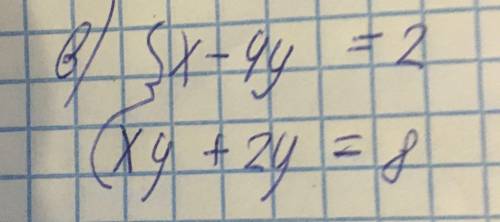 в) { x - 4y = 2
xy + 2y = 8